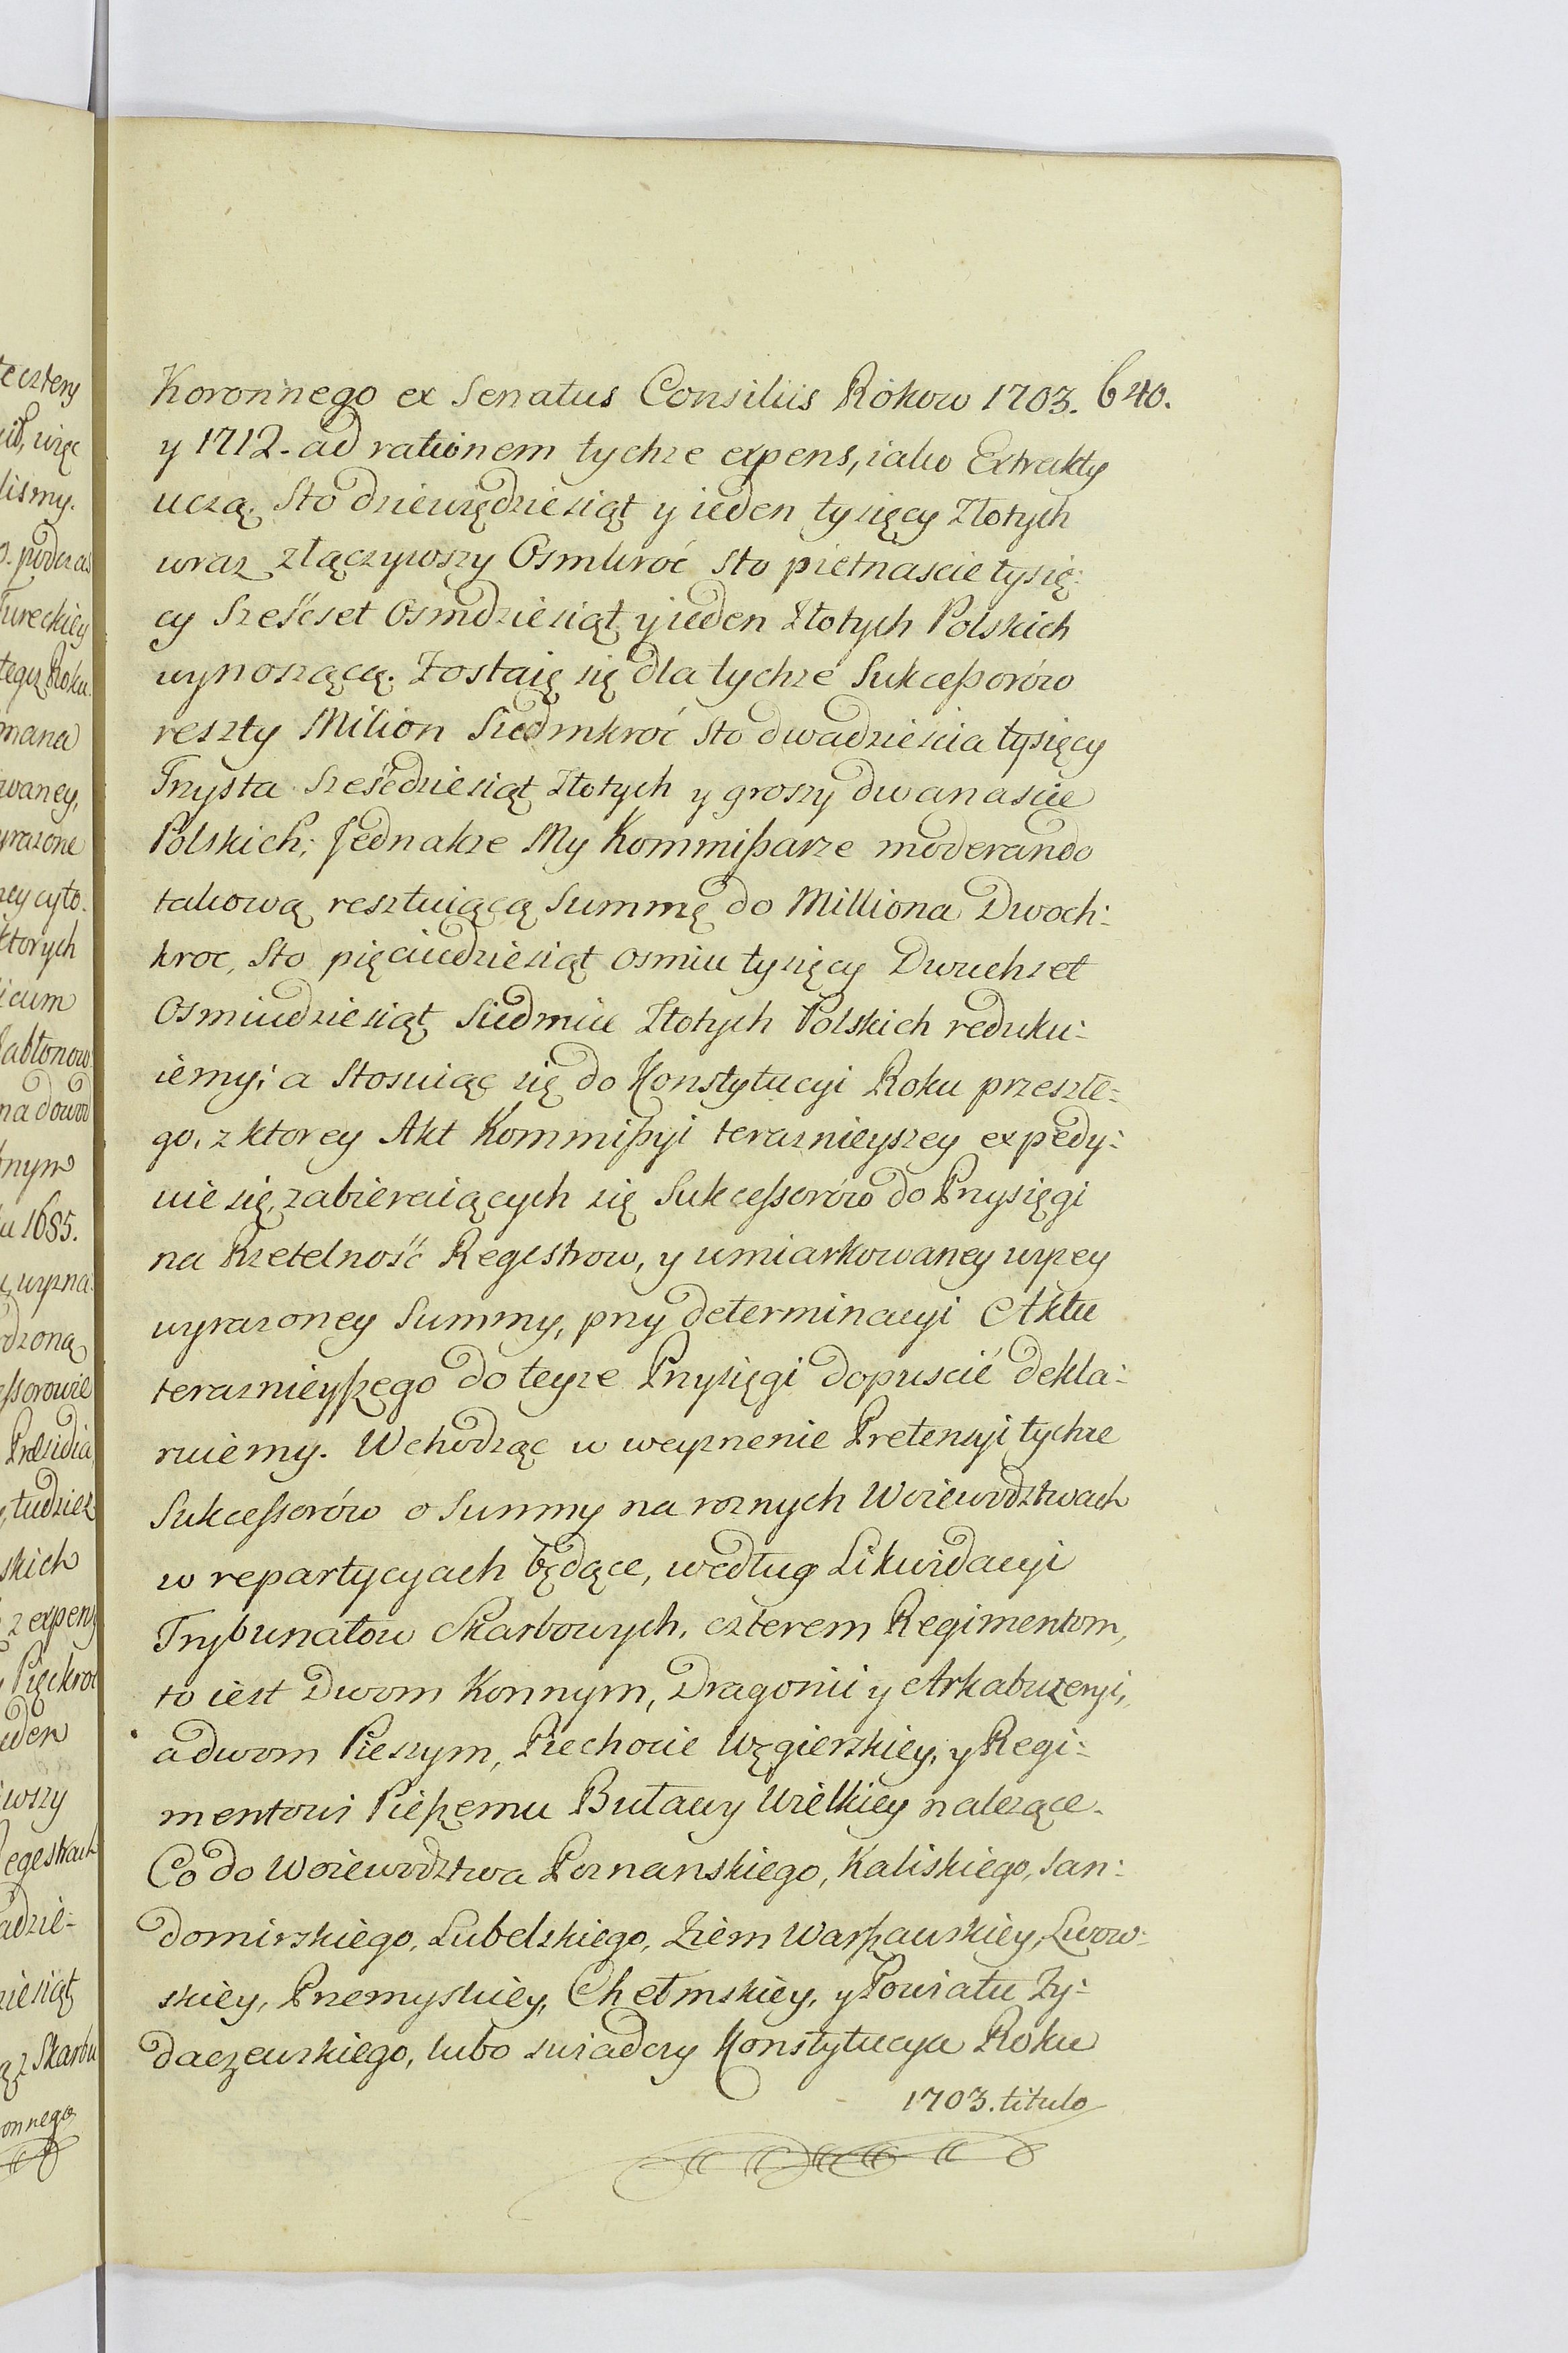 Koronnego ex Senatus Consiliis Rokow 1703. 640.
y 1712. ad rationem tychze expens, iako Extrakty
uczą. Sto dziewiędziesiąt y ieden tysięcy Złotych
wraz złączywszy Osmkroć sto pietnascie tysię:
cy Sześćset Osmdziesiąt y ieden Złotych Polskich
wynoszącą. Zostaię się dla tychże Sukceßorów
reszty Milion Siedmkroć sto dwadzieścia tysięcy
Trzysta Sześćdziesiąt Złotych y groszy dwanascie
Polskich; Jednakze My Kommißarze moderando
takową resztuiącą Summę do Milliona Dwoch:
kroc, Sto pięciudziesiąt osmiu tysięcy Dwuchset
Osmiudziesiąt Siedmiu Złotych Polskich reduku:
iemy; a stosuiąc się do Konstytucyi Roku przeszłe:
go, z ktorey Akt Kommißyi terasnieyszey expedy:
uie się, zabieraiących się Sukcessorów do Przysięgi
na Rzetelność Regestrow, y umiarkowaney wyzey
wyrazoney Summy, przy determinacyi Aktu
terasnieyszego do teyze Przysięgi dopuscić dekla:
ruiemy. Wchodząc w weyznenie Pretensyi tychze
Sukcessorów o Summy na roznych Woiewodztwach
w repartycyach będące, według Likwidacyi
Trybunałow Skarbowych, czterem Regimentom,
to iest Dwom Konnym, Dragonii y Arkabuzeryi,
a dwom Pieszym, Piechocie Węgierskiey, y Regi:
mentowi Pieszemu Buławy Wielkiey nalezące.
Co do Woiewodztwa Poznanskiego, Kaliskiego, San:
domirskiego, Lubelskiego, Ziem Warszawskiey, Lwow:
skiey, Przemyskiey, Chełmskiey, y Powiatu Zy:
daczewskiego, lubo swiadczy Konstytucya Roku
1703. titulo